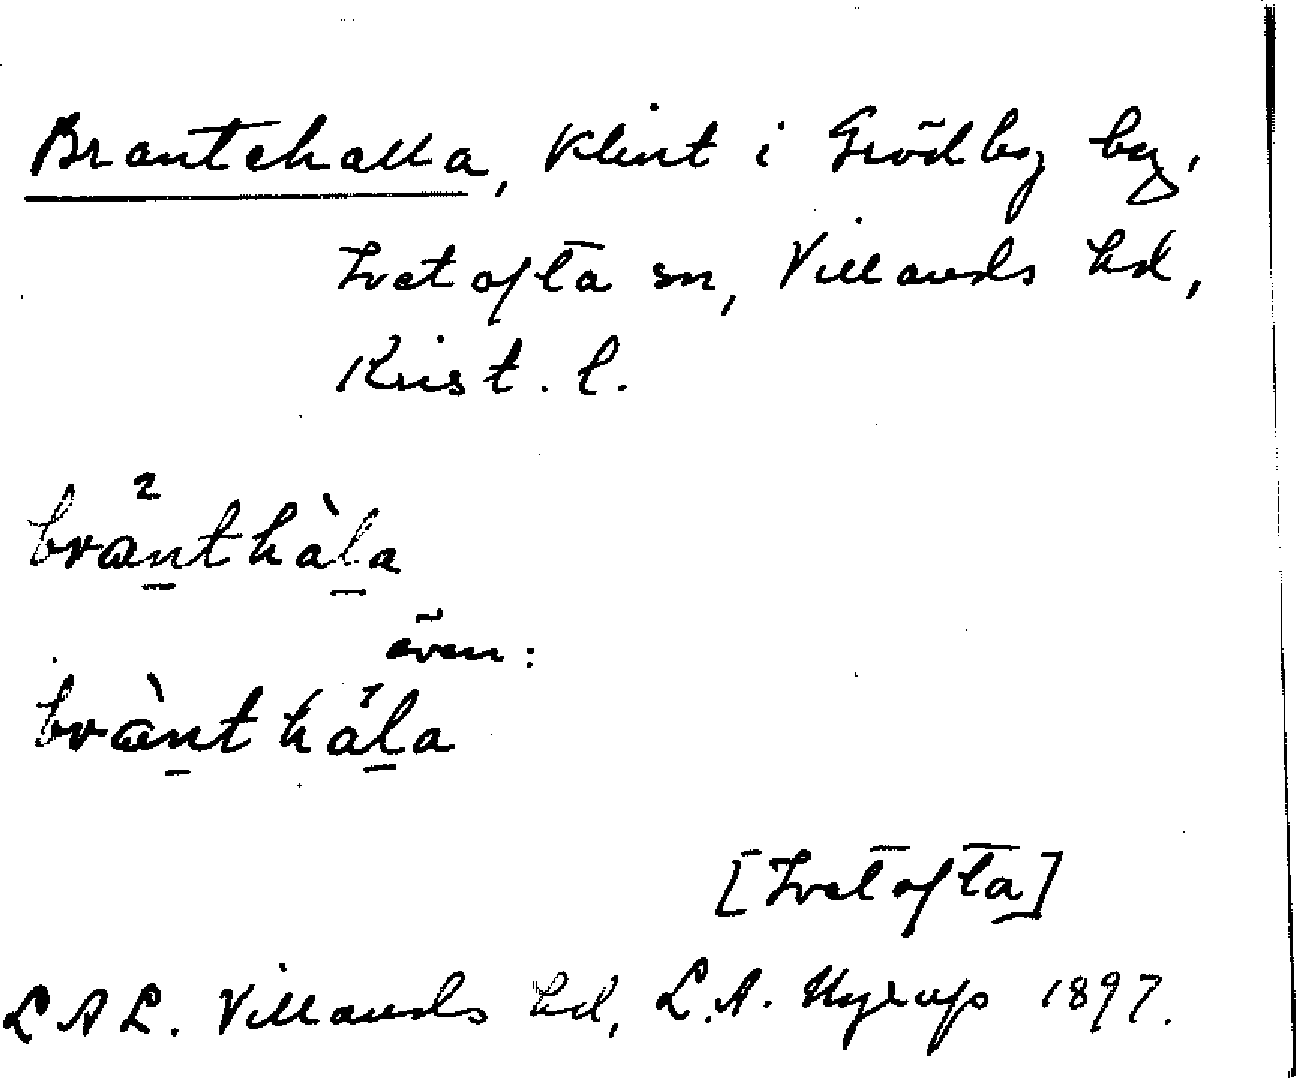 Brantehalla, klint i Grödby by,
Ivetofta sn, Villands hd,
Krist. l.
brant hàla
även:
brànt hála
[Ivetofta]
LAL. Villands hd, L.A. Nyrup 1897.